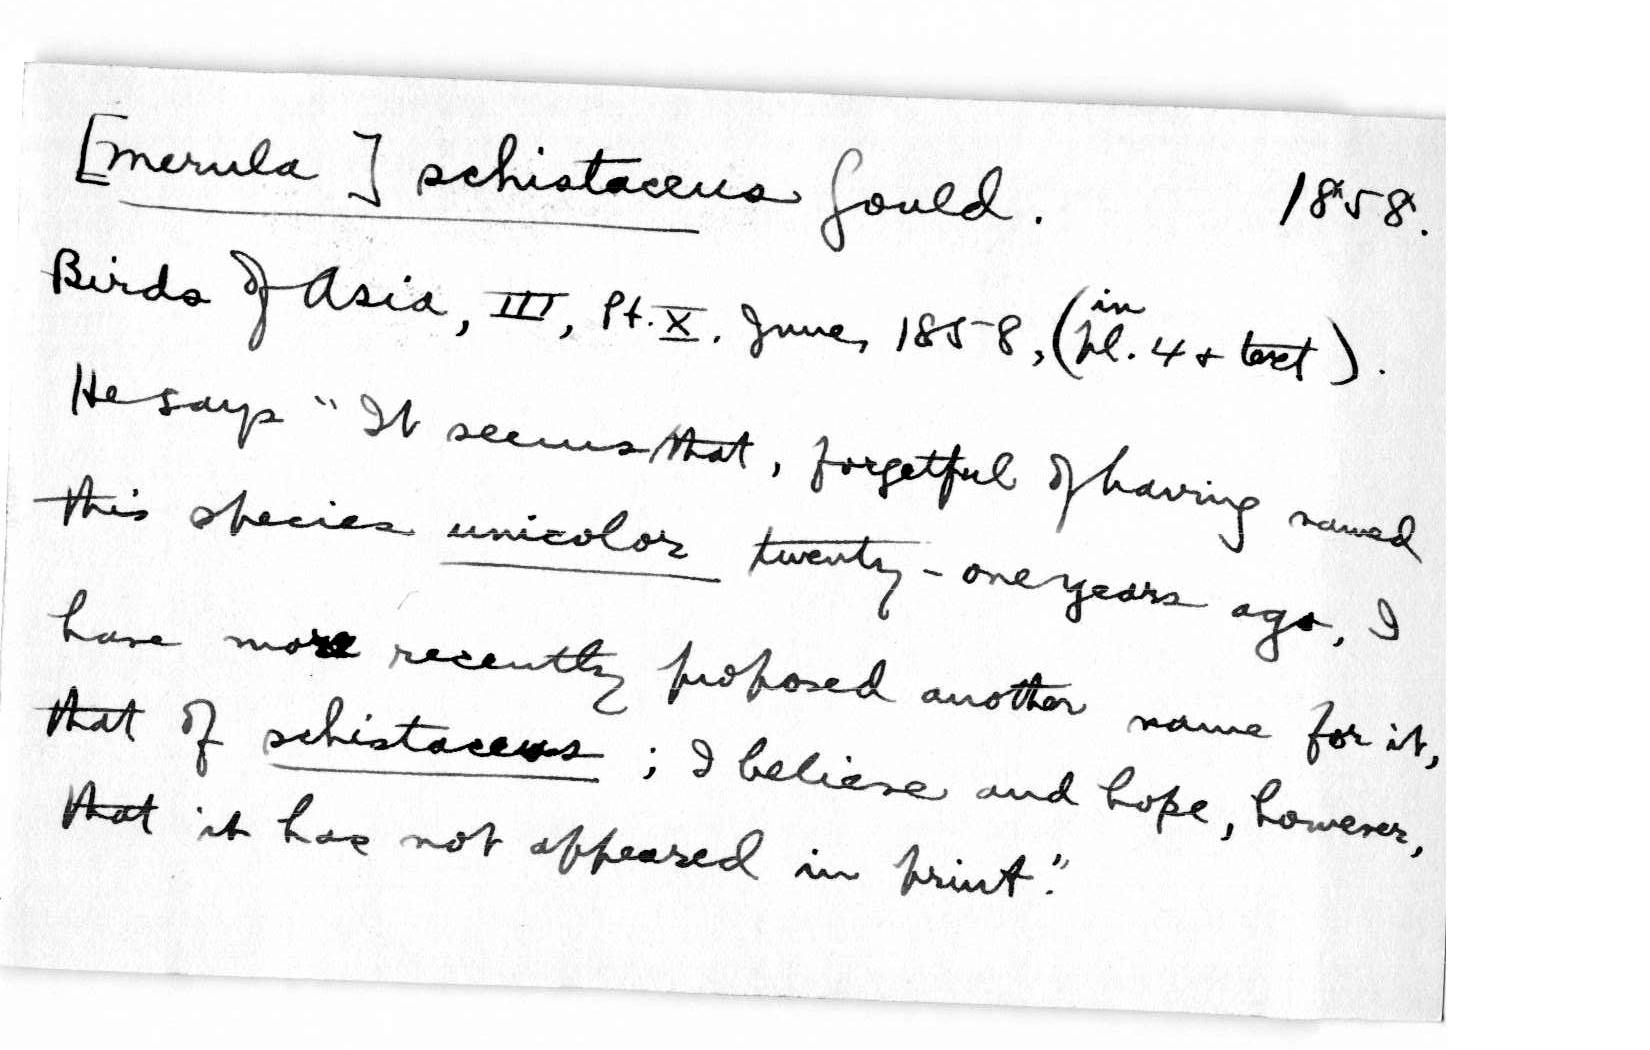 [Merula] schistaceus Gould. 1858.
Birds of Asia, III, Pt. X. June, 1858, (in pl. 4 & text).
He says "It seems that, forgetful of having named
this species unicolor twenty-one years ago, I
have more recently proposed another name for it,
that of schistaceus; I believe and hope, however,
that it has not appeared in print."